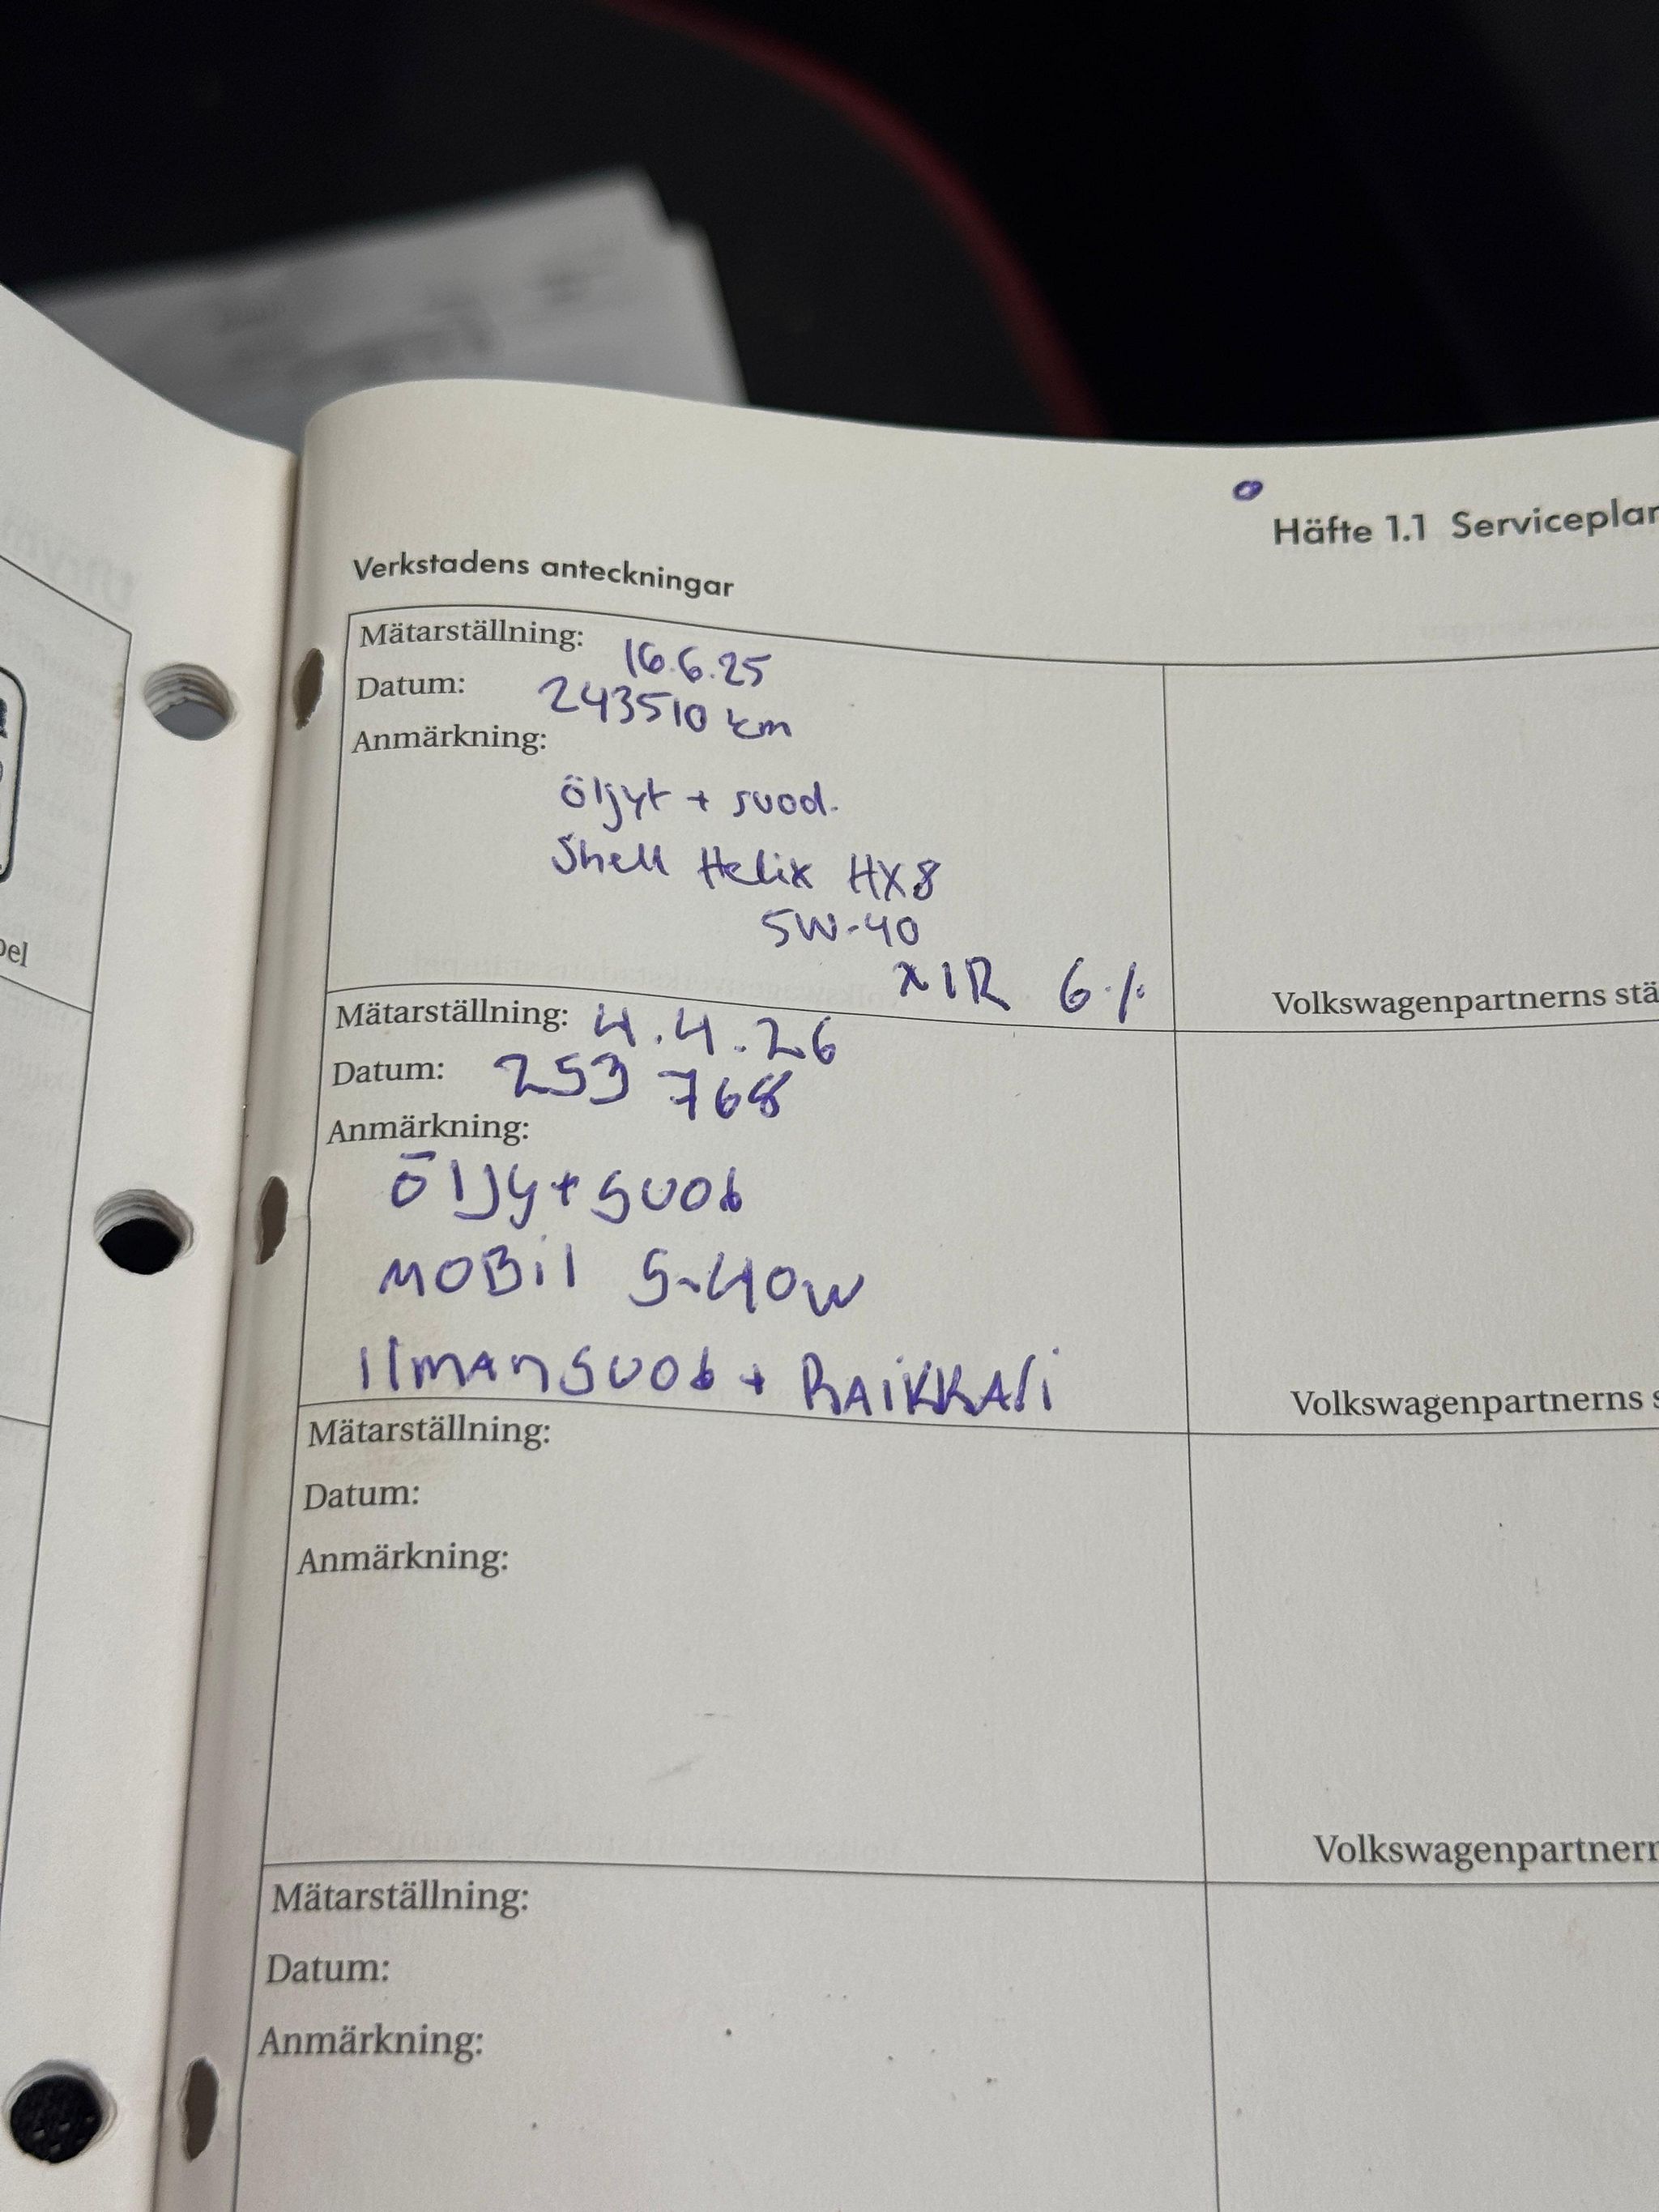 Häfte 1.1 Serviceplan
Verkstadens anteckningar
Mätarställning: 16.6.25
Datum: 243510 km
Anmärkning:
öljyt + suod.
Shell Helix HX8
5W-40
x1R 6%
Volkswagenpartnerns stä
Mätarställning: 4.4.26
Datum: 253 768
Anmärkning:
Öljy+suod
MOBil 5-40w
Ilmansuod + RAiKKAri
Volkswagenpartnerns s
Mätarställning:
Datum:
Anmärkning:
Volkswagenpartnern
Mätarställning:
Datum:
Anmärkning:
pel